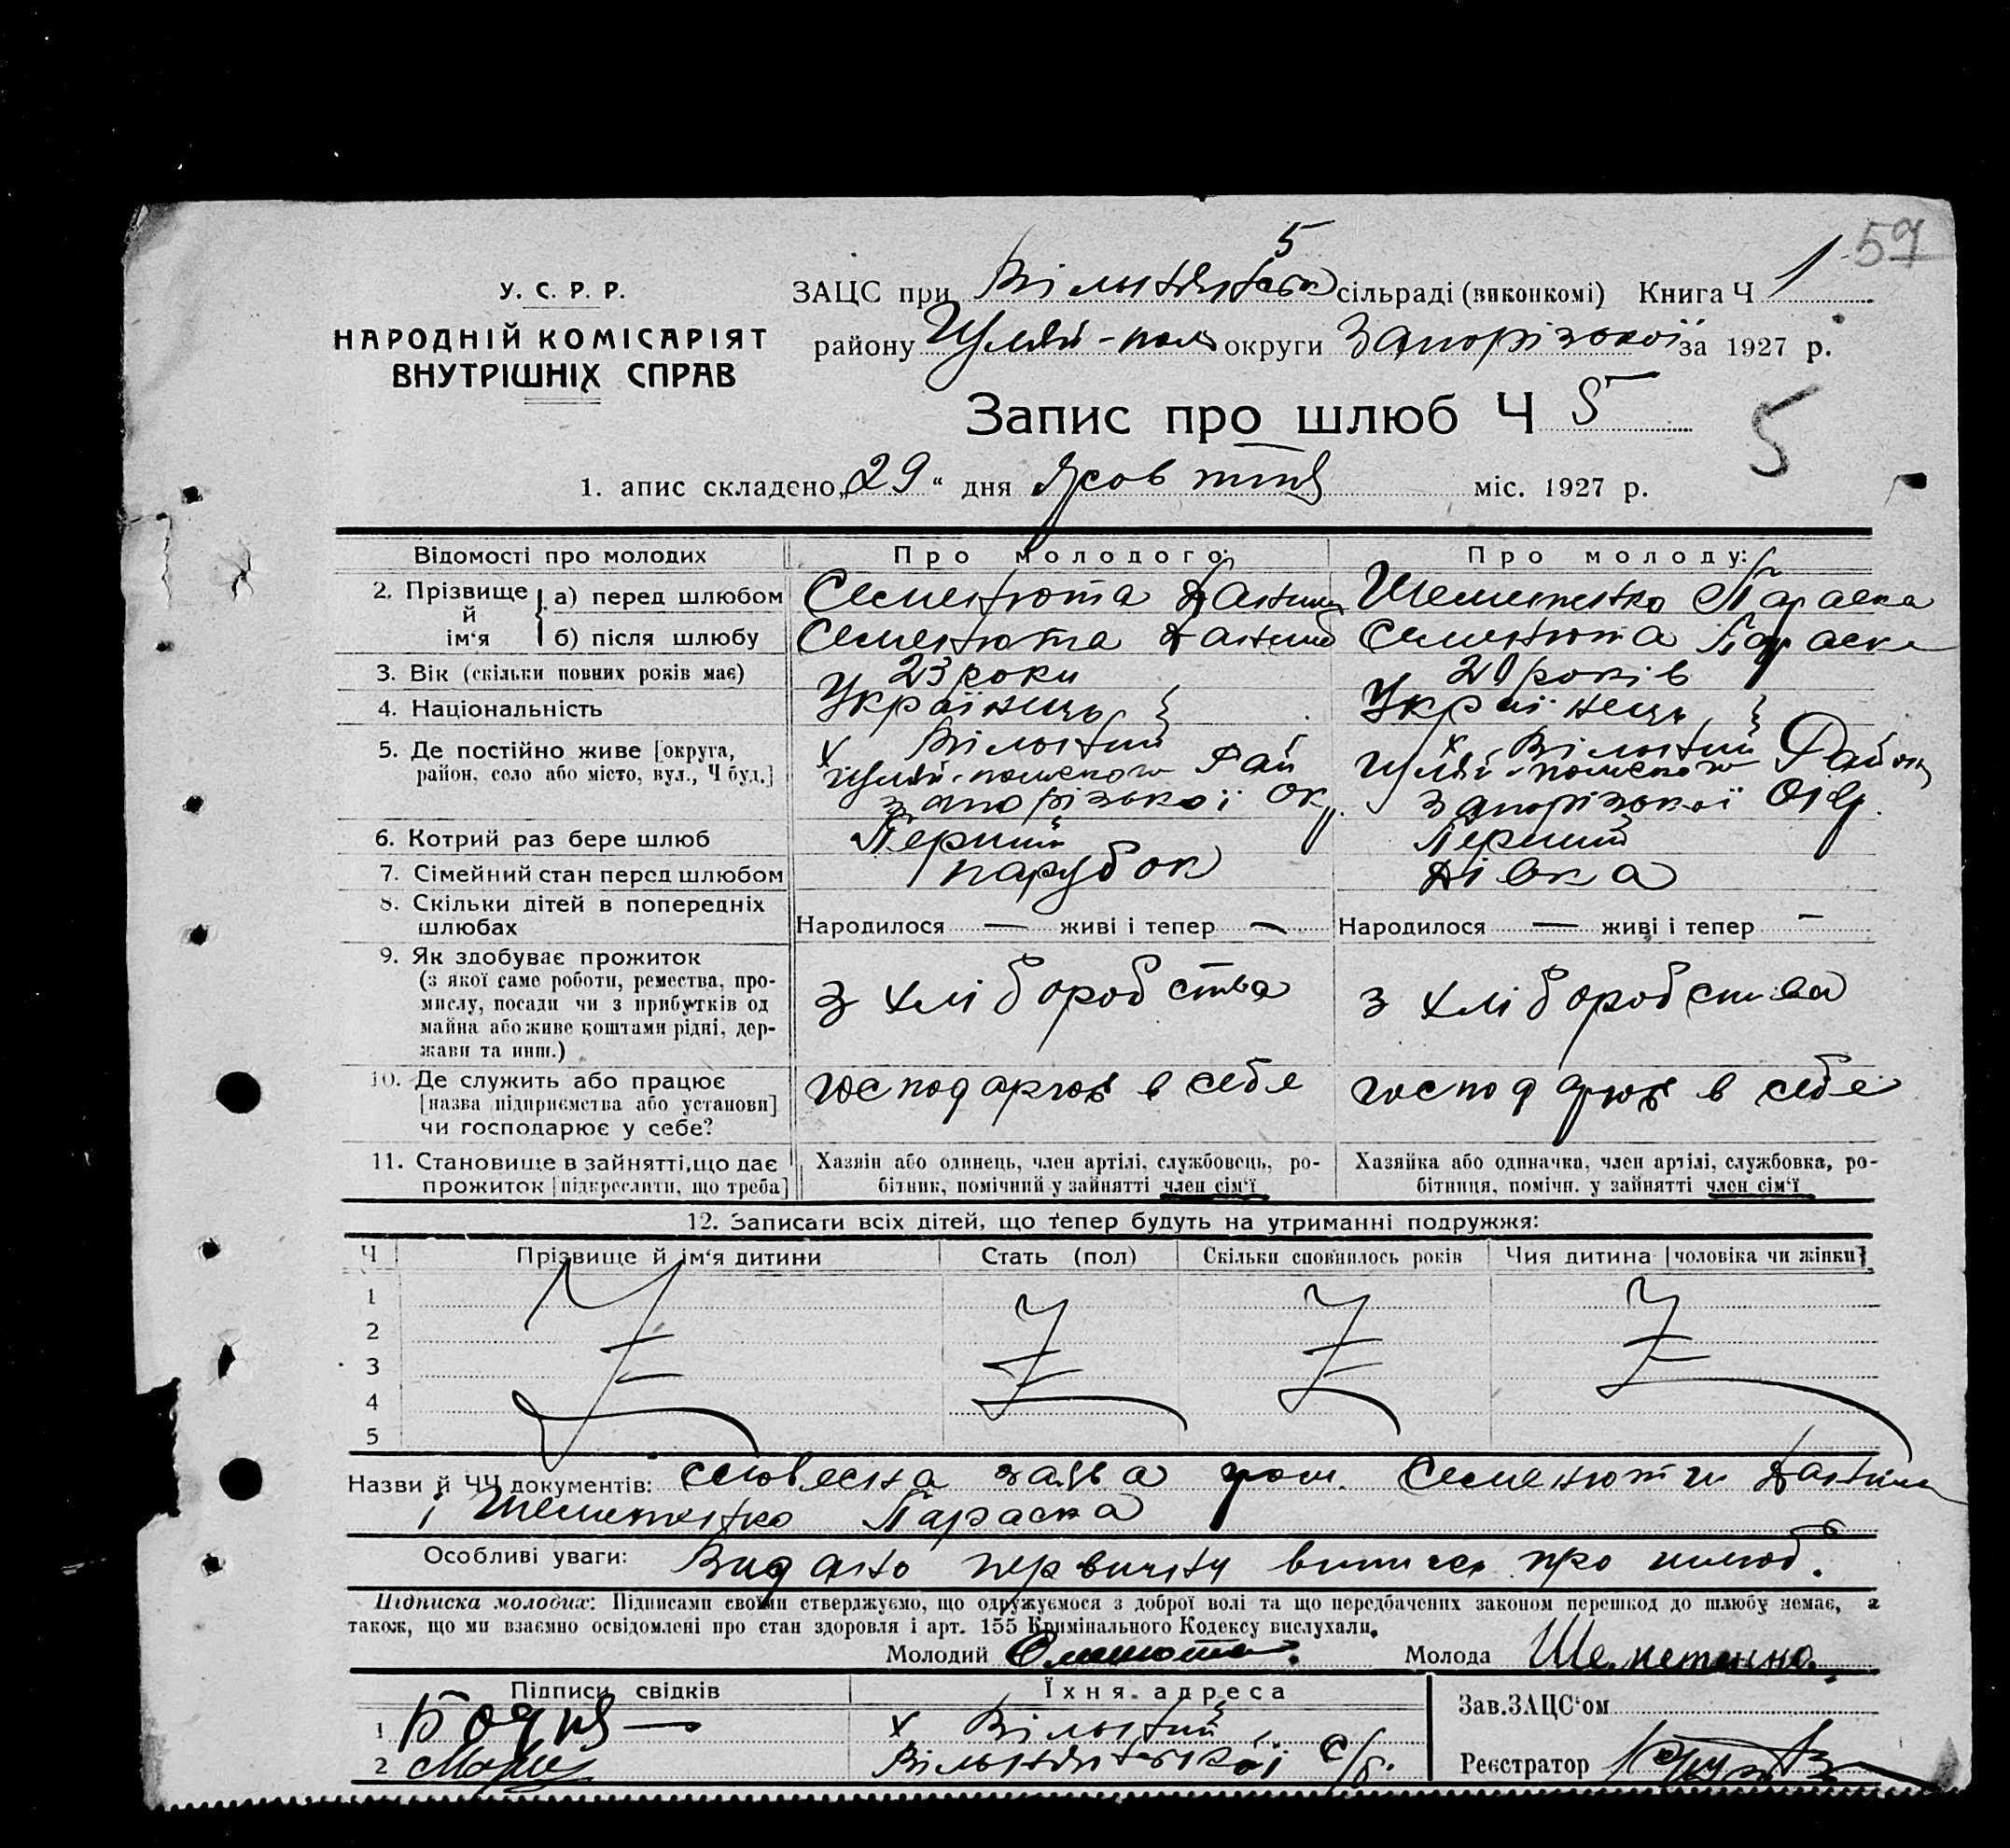 59
5
У. С. Р. Р.
НАРОДНІЙ КОМІСАРІЯТ
ВНУТРІШНІХ СПРАВ
ЗАЦС при сільраді (виконкомі) Книга Ч 1
району Гуляй-поль округи Запорізької за 1927 р.
Запис про шлюб Ч 5
5
1. апис складено „29“ дня Жовтня міс. 1927 р.
Відомості про молодих
Про молодого:
Про молоду:
2. Прізвище й ім‘я
а) перед шлюбом
Семенюта Данило
Шеметенко Параска
б) після шлюбу
Семенюта Данило
Семенюта Параска
3. Вік (скільки повних років має)
23 роки
20 років
4. Національність
Українець
Українець
5. Де постійно живе [округа,
район, село або місто, вул., Ч буд.]
х Вільний
Гуляй-польського Рай
Запорізької Окр.
х Вільний
Гуляй-польського Району
Запорізької Окр.
6. Котрий раз бере шлюб
Перший
Перший
7. Сімейний стан перед шлюбом
парубок
дівка
8. Скільки дітей в попередніх
шлюбах
Народилося — живі і тепер —
Народилося — живі і тепер —
9. Як здобуває прожиток
(з якої саме роботи, ремества, про-
мислу, посади чи з прибутків од
майна або живе коштами рідні, дер-
жави та инш.)
з хліборобства
з хліборобства
10. Де служить або працює
[назва підприємства або установи]
чи господарює у себе?
господарює в себе
господарює в себе
11. Становище в зайнятті, що дає
прожиток [підкреслити, що треба]
Хазяін або одинець, член артілі, службовець, ро-
бітник, помічний у зайнятті член сім‘ї
Хазяйка або одиначка, член артілі, службовка, ро-
бітниця, помічн. у зайнятті член сім‘ї
12. Записати всіх дітей, що тепер будуть на утриманні подружжя:
Ч
Прізвище й ім‘я дитини
Стать (пол)
Скільки сповнилось років
Чия дитина [чоловіка чи жінки]
1
2
3
4
5
Назви й ЧЧ документів: словесна заява гром. Семенюти Данила
і Шеметенко Параска
Особливі уваги: Видано первичну виписку про шлюб.
Підписка молодих: Підписами своїми стверджуємо, що одружуємося з доброї волі та що передбачених законом перешкод до шлюбу немає, а
також, що ми взаємно освідомлені про стан здоровля і арт. 155 Кримінального Кодексу вислухали.
Молодий Семенюта.
Молода Шеметенко.
Підписи свідків
Їхня адреса
1
х Вільний
2
Вільнянської С/р.
Зав. ЗАЦС‘ом
Реєстратор